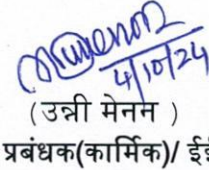 4/10/24
(उन्नी मेनन )
प्रबंधक(कार्मिक)/ ईई